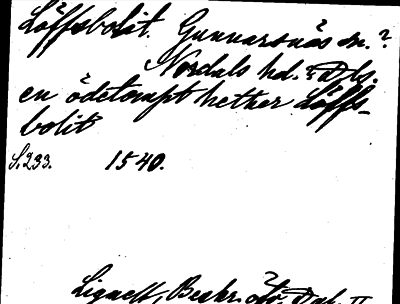 Löffsbolit. Gunnarsnäs sn.?
Nordals hd. Dls.
en ödetompt hether Löffs-
bolit
S. 233. 1540.
Lignell, Beskr. öfv. Dal. II